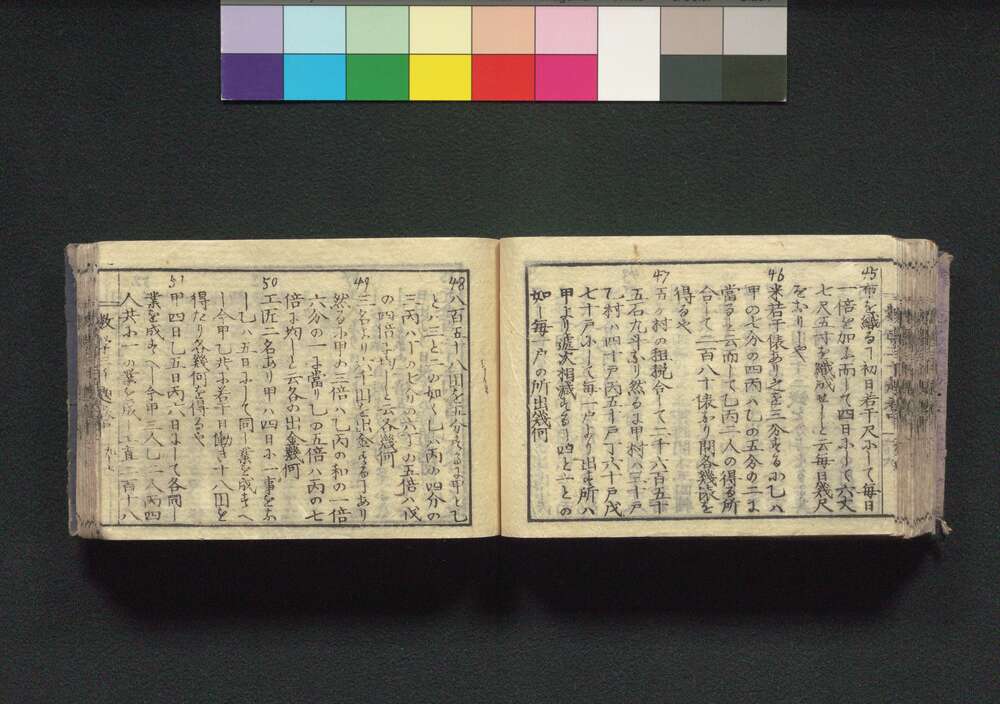 45 布を織る丁初日若干尺ニして毎日
一倍を加ふ而して四日ニして六丈
七尺五寸を織成せしと云毎日幾尺
をおりしや
46 米若干俵あり之を三分する小乙ハ
甲の七分の四丙ハ乙の五分の二ニ
當ると云而して乙丙二人の得る所
合して二百八十俵なり問各幾俵を
得るや
47 五ケ村の租税合して二千六百五十
五石九斗なり然るニ甲村ハ三十戸
乙村ハ四十戸丙五十戸丁六十戸戊
七十戸ニして毎一戸より出する所ハ
甲より遞次相減する丁四と二との
如し毎一戸の所出幾何
48 八百五十八圓を五分する丁甲と乙
とハ三と二の如くし乙ハ丙の四分の
三丙ハ丁の七分の六丁の五倍ハ戊
の四倍ニ均しと云各幾何
49 三名より八十圓を出金する丁あり
然るニ甲の三倍ハ乙丙の和の一倍
六分の一ニ當り乙の五倍ハ丙の七
倍ニ均しと云各の出金幾何
50 工匠二名あり甲ハ四日ニ一事をふ
し乙ハ五日ニして同し業を成すへ
し今甲乙共ニ若干日働き十八圓を
得たり各幾何を得るや
51 甲四日乙五日丙六日ニして各同し
業を成すへし今甲三人乙二人丙四
人共ニ一の業を成し工直二百十八